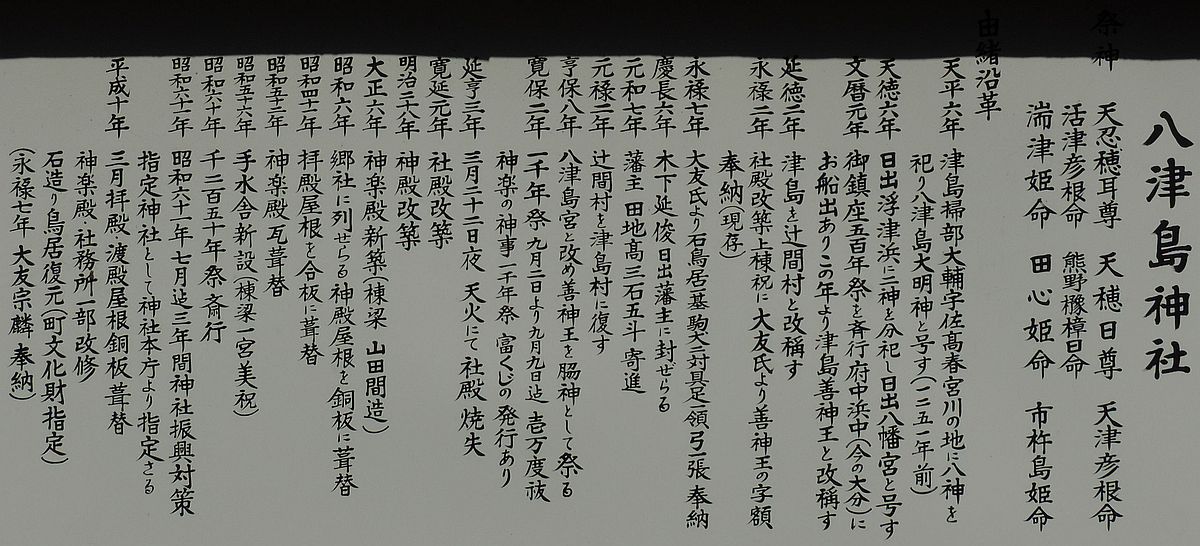 八津島神社
祭神 天忍穂耳尊 天穂日尊 天津彦根命
活津彦根命 熊野櫲樟日命
湍津姫命 田心姫命 市杵島姫命
由緒沿革
天平六年 津島掃部大輔宇佐髙春宮川の地に八神を
祀り八津島大明神と号す(一二五一年前)
天徳六年 日出浮津浜に二神を分祀し日出八幡宮と号す
文暦元年 御鎮座五百年祭を斉行府中浜中(今の大分)に
お船出ありこの年より津島善神王と改稱す
延徳二年 津島を辻間村と改稱す
永禄二年 社殿改築上棟祝に大友氏より善神王の字額
奉納(現存)
永禄七年 大友氏より石鳥居一基駒犬一対具足一領弓一張奉納
慶長六年 木下延俊日出藩主に封ぜらる
元和七年 藩主田地髙三石五斗寄進
元禄二年 辻間村を津島村に復す
享保八年 八津島宮と改め善神王を脇神として祭る
寛保二年 一千年祭九月二日より九月九日迠壱万度祓
神楽の神事一千年祭富くじの発行あり
延享三年 三月二十二日夜 天火にて社殿焼失
寛延元年 社殿改築
明治二十八年 神殿改築
大正六年 神楽殿新築(棟梁 山田間造)
昭和六年 郷社に列せらる神殿屋根を銅板に葺替
昭和四十一年 拝殿屋根を合板に葺替
昭和五十二年 神楽殿瓦葺替
昭和五十六年 手水舎新設(棟梁一宮美祝)
昭和六十年 千二百五十年祭斎行
昭和六十一年 昭和六十一年七月迠三年間神社振興対策
指定神社として神社本庁より指定さる
平成十年 三月拝殿渡殿屋根銅板葺替
神楽殿 社務所一部改修
石造り鳥居復元(町文化財指定)
(永禄七年 大友宗麟奉納)